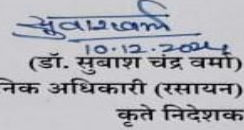 सुवाशवर्मा
10.12.2024
(डॉ. सुबाश चंद्र वर्मा)
निक अधिकारी (रसायन)
कृते निदेशक